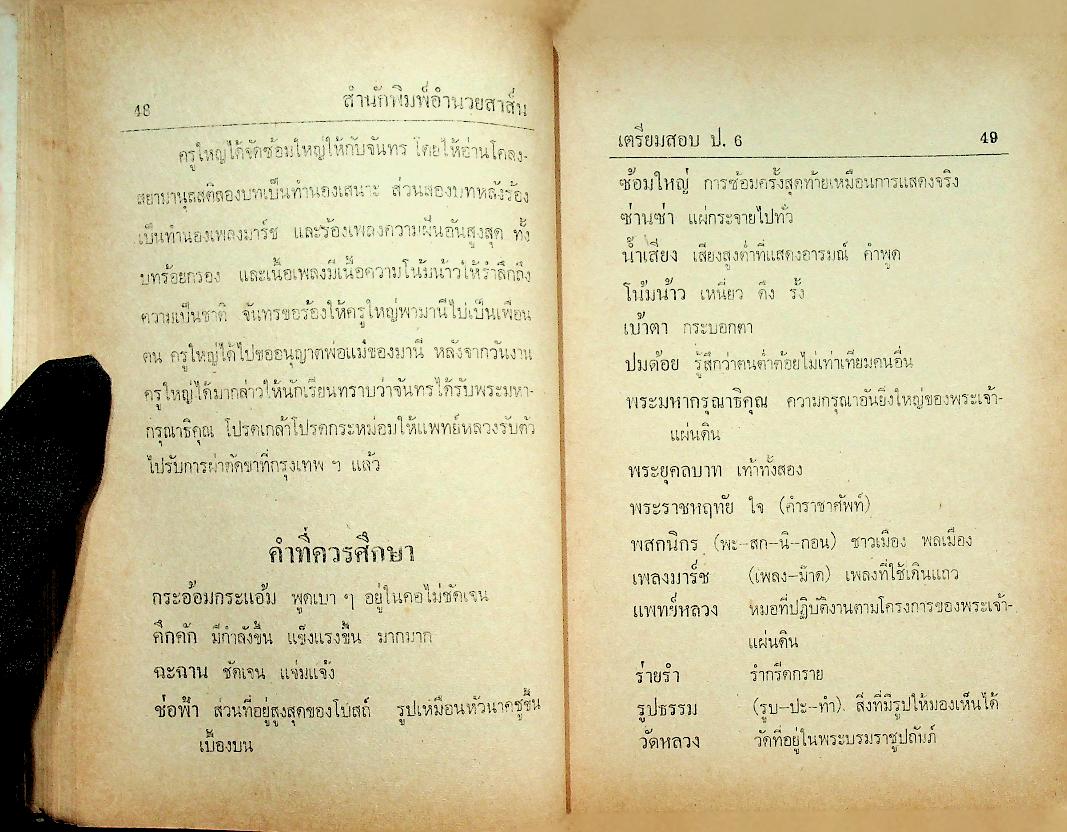 48 สำนักพิมพ์อำนวยสาส์น
ครูใหญ่ได้จัดซ้อมใหญ่ให้กับจันทร โดยให้อ่านโคลง-
สยามานุสสติสองบทเป็นทำนองเสนาะ ส่วนสองบทหลังร้อง
เป็นทำนองเพลงมาร์ช และร้องเพลงความฝันอันสูงสุด ทั้ง
บทร้อยกรอง และเนื้อเพลงมีเนื้อความโน้มน้าวให้รำลึกถึง
ความเป็นชาติ จันทรขอร้องให้ครูใหญ่พามานีไปเป็นเพื่อน
ตน ครูใหญ่ได้ไปขออนุญาตพ่อแม่ของมานี หลังจากวันงาน
ครูใหญ่ได้มากล่าวให้นักเรียนทราบว่าจันทรได้รับพระมหา-
กรุณาธิคุณ โปรดเกล้าโปรดกระหม่อมให้แพทย์หลวงรับตัว
ไปรับการผ่าตัดขาที่กรุงเทพ ฯ แล้ว
คำที่ควรศึกษา
กระอ้อมกระแอ้ม พูดเบา ๆ อยู่ในคอไม่ชัดเจน
คึกคัก มีกำลังขึ้น แข็งแรงขึ้น มากมาก
ฉะฉาน ชัดเจน แจ่มแจ้ง
ช่อฟ้า ส่วนที่อยู่สูงสุดของโบสถ์ รูปเหมือนหัวนาคชูขึ้น
เบื้องบน
เตรียมสอบ ป. 6 49
ซ้อมใหญ่ การซ้อมครั้งสุดท้ายเหมือนการแสดงจริง
ซ่านซ่า แผ่กระจายไปทั่ว
น้ำเสียง เสียงสูงต่ำที่แสดงอารมณ์ คำพูด
โน้มน้าว เหนี่ยว ดึง รั้ง
เบ้าตา กระบอกตา
ปมด้อย รู้สึกว่าตนต่ำต้อยไม่เท่าเทียมคนอื่น
พระมหากรุณาธิคุณ ความกรุณาอันยิ่งใหญ่ของพระเจ้า-
แผ่นดิน
พระยุคลบาท เท้าทั้งสอง
พระราชหฤทัย ใจ (คำราชาศัพท์)
พสกนิกร (พะ-สก-นิ-กอน) ชาวเมือง พลเมือง
เพลงมาร์ช (เพลง-ม๊าด) เพลงที่ใช้เดินแถว
แพทย์หลวง หมอที่ปฏิบัติงานตามโครงการของพระเจ้า-
แผ่นดิน
ร่ายรำ รำกรีดกราย
รูปธรรม (รูบ-ปะ-ทำ) สิ่งที่มีรูปให้มองเห็นได้
วัดหลวง วัดที่อยู่ในพระบรมราชูปถัมภ์